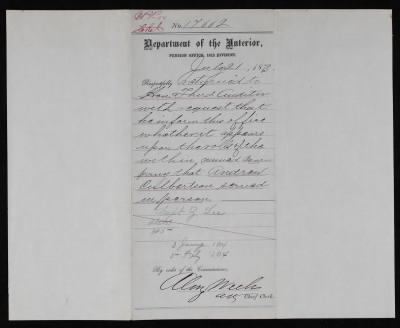 No. 17662
Department of the Interior,
PENSION OFFICE, 1812 DIVISION,
July 21, 187
Respectfully
Hon. Third Auditor
with request that
he inform this office
whether it appears
upon the rolls of the
within named Com-
pany that Andrew
Culbertson served
in person
Capt Z. Lee
By order of the Commissioner,
Alex
actg Chief Clerk